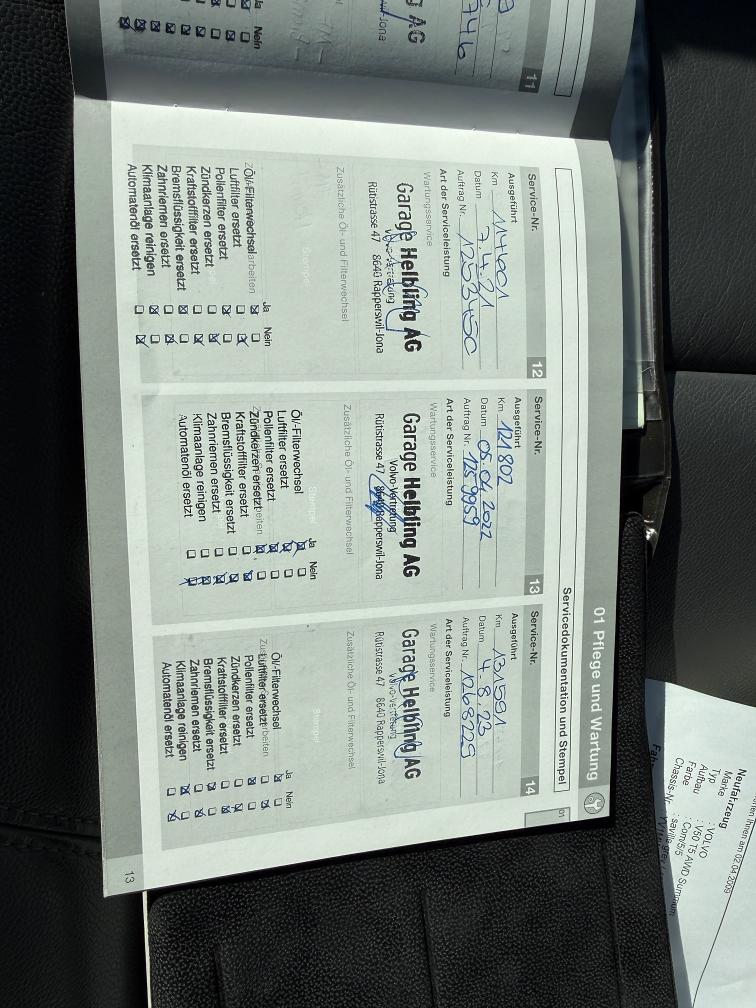 01 Pflege und Wartung
Servicedokumentation und Stempel
01
11
746
AG
-Jona
Ja Nein
Service-Nr. 12
Ausgeführt
Km 114601
Datum 7.4.21
Auftrag Nr.
Art der Serviceleistung
Wartungsservice
Garage Helbling AG
Volvo-Vertretung
Rütistrasse 47 8640 Rapperswil-Jona
Zusätzliche Öl- und Filterwechsel
Ja Nein
Öl/-Filterwechsel
Luftfilter ersetzt
Pollenfilter ersetzt
Zündkerzen ersetzt
Kraftstofffilter ersetzt
Bremsflüssigkeit ersetzt
Zahnriemen ersetzt
Klimaanlage reinigen
Automatenöl ersetzt
Service-Nr. 13
Ausgeführt
Km 121802
Datum 05.04.2022
Auftrag Nr. 1259059
Art der Serviceleistung
Wartungsservice
Garage Helbling AG
Volvo-Vertretung
Rütistrasse 47 8640 Rapperswil-Jona
Zusätzliche Öl- und Filterwechsel
Stempel
Ja Nein
Öl/-Filterwechsel
Luftfilter ersetzt
Pollenfilter ersetzt
Zündkerzen ersetzt
Kraftstofffilter ersetzt
Bremsflüssigkeit ersetzt
Zahnriemen ersetzt
Klimaanlage reinigen
Automatenöl ersetzt
Service-Nr. 14
Ausgeführt
Km 131591
Datum 4.8.23
Auftrag Nr. 1268229
Art der Serviceleistung
Wartungsservice
Garage Helbling AG
Volvo-Vertretung
Rütistrasse 47 8640 Rapperswil-Jona
Zusätzliche Öl- und Filterwechsel
Stempel
Ja Nein
Öl/-Filterwechsel
Luftfilter ersetzt
Pollenfilter ersetzt
Zündkerzen ersetzt
Kraftstofffilter ersetzt
Bremsflüssigkeit ersetzt
Zahnriemen ersetzt
Klimaanlage reinigen
Automatenöl ersetzt
13
Ihnen am 02.04.2009
Neufahrzeug
Marke : VOLVO
Typ : V50 T5 AWD Summum
Aufbau : Com/5/5
Farbe
Chassis-Nr.